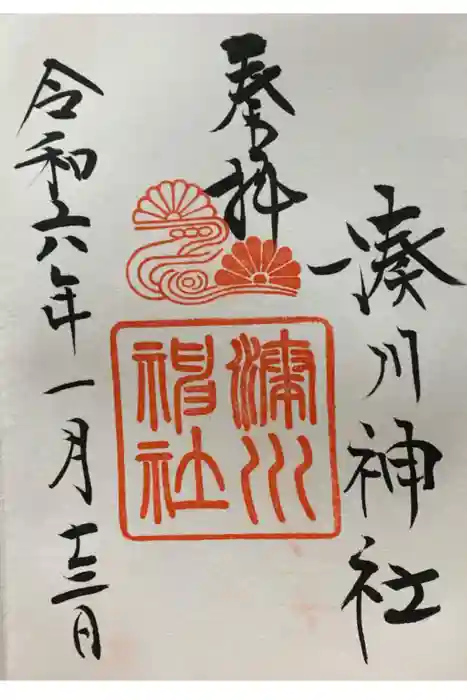 奉拝
湊川神社
湊川神社
令和六年一月十三日